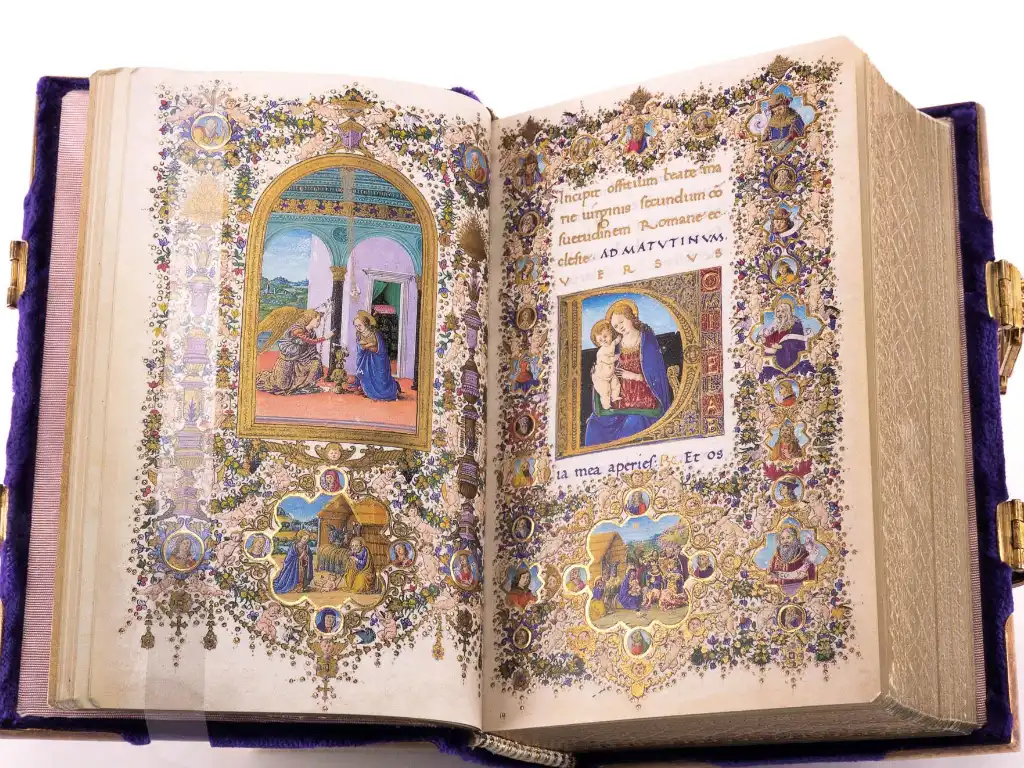 Incipit offitium beate ma
rie uirginis secundum cō
suetudinem Romane ec
clesie. AD MATVTINVM.
VERSVS
D
ia mea aperies: R. Et os